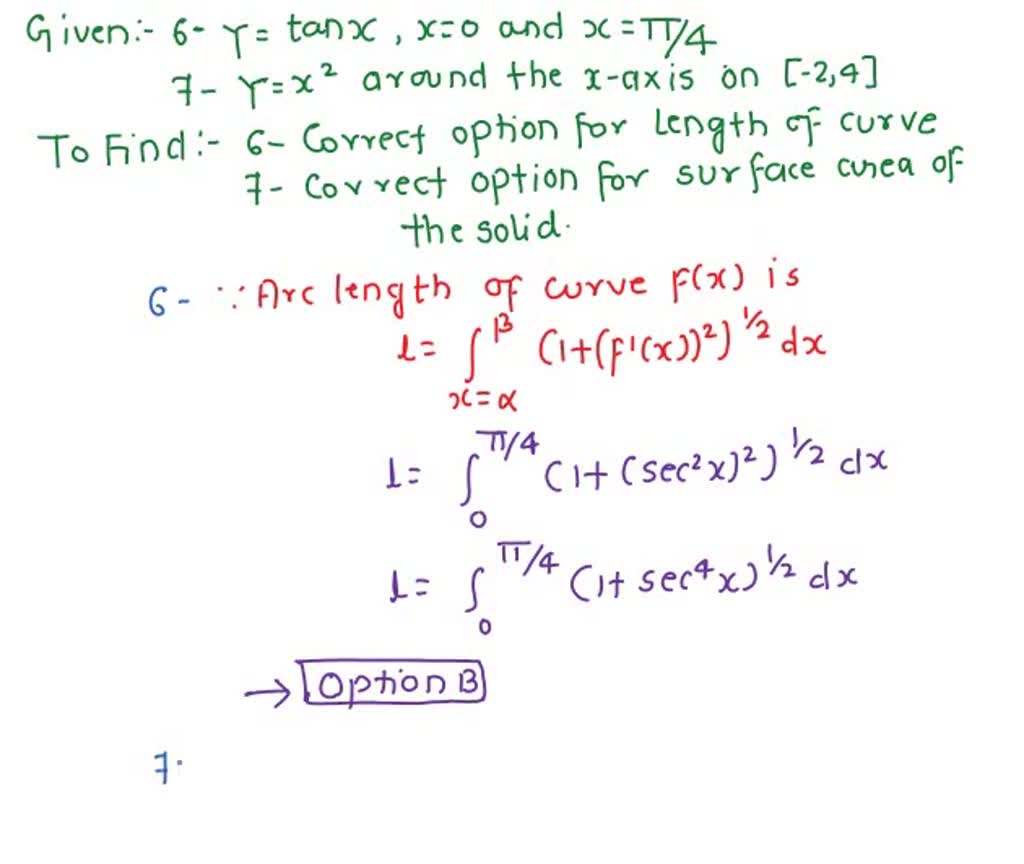 Given:- 6- Y = tanx, x=0 and x = π/4
7- Y = x² around the x-axis on [-2,4]
To Find:- 6- Correct option for Length of curve
7- Correct option for surface area of
the solid.
6- ∵ Arc length of curve F(x) is
l = ∫_{x=α}^{β} (1+(F'(x))²)^{1/2} dx
l = ∫_{0}^{π/4} (1+(sec²x)²)^{1/2} dx
l = ∫_{0}^{π/4} (1+sec⁴x)^{1/2} dx
→ Option B
7-